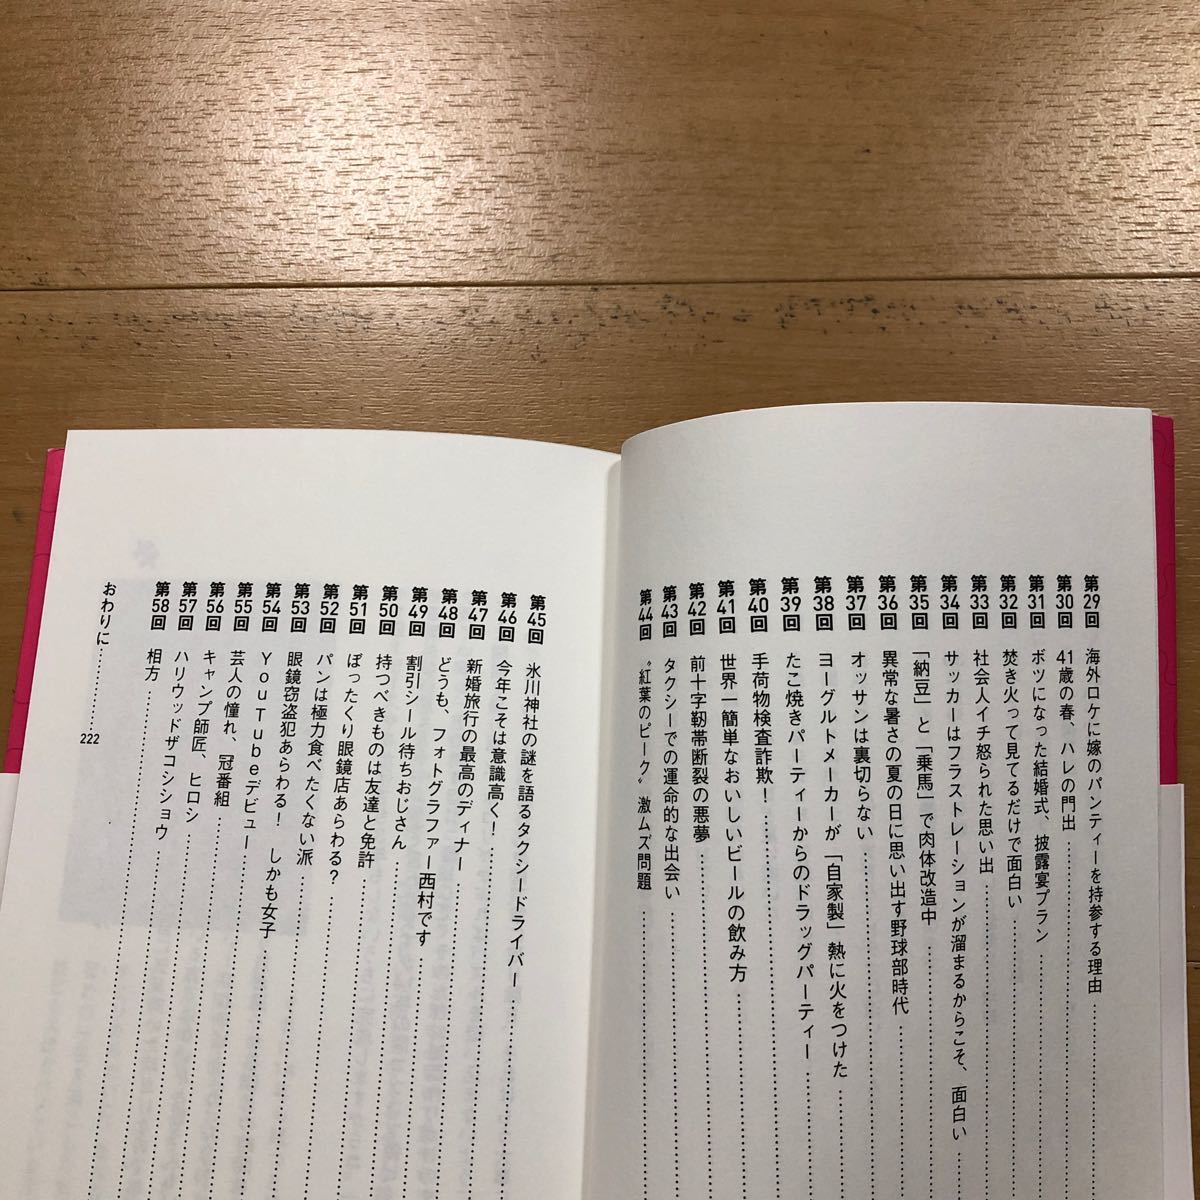 第29回 海外ロケに嫁のパンティーを持参する理由
第30回 41歳の春、ハレの門出
第31回 ボツになった結婚式、披露宴プラン
第32回 焚き火って見てるだけで面白い
第33回 社会人イチ怒られた思い出
第34回 サッカーはフラストレーションが溜まるからこそ、面白い
第35回 「納豆」と「乗馬」で肉体改造中
第36回 異常な暑さの夏の日に思い出す野球部時代
第37回 オッサンは裏切らない
第38回 ヨーグルトメーカーが「自家製」熱に火をつけた
第39回 たこ焼きパーティーからのドラッグパーティー
第40回 手荷物検査詐欺！
第41回 世界一簡単なおいしいビールの飲み方
第42回 前十字靭帯断裂の悪夢
第43回 タクシーでの運命的な出会い
第44回 〝紅葉のピーク〟激ムズ問題
第45回 氷川神社の謎を語るタクシードライバー
第46回 今年こそは意識高く！
第47回 新婚旅行の最高のディナー
第48回 どうも、フォトグラファー西村です
第49回 割引シール待ちおじさん
第50回 持つべきものは友達と免許
第51回 ぼったくり眼鏡店あらわる？
第52回 パンは極力食べたくない派
第53回 眼鏡窃盗犯あらわる！ しかも女子
第54回 YouTubeデビュー
第55回 芸人の憧れ、冠番組
第56回 キャンプ師匠、ヒロシ
第57回 ハリウッドザコシショウ
第58回 相方
おわりに 222